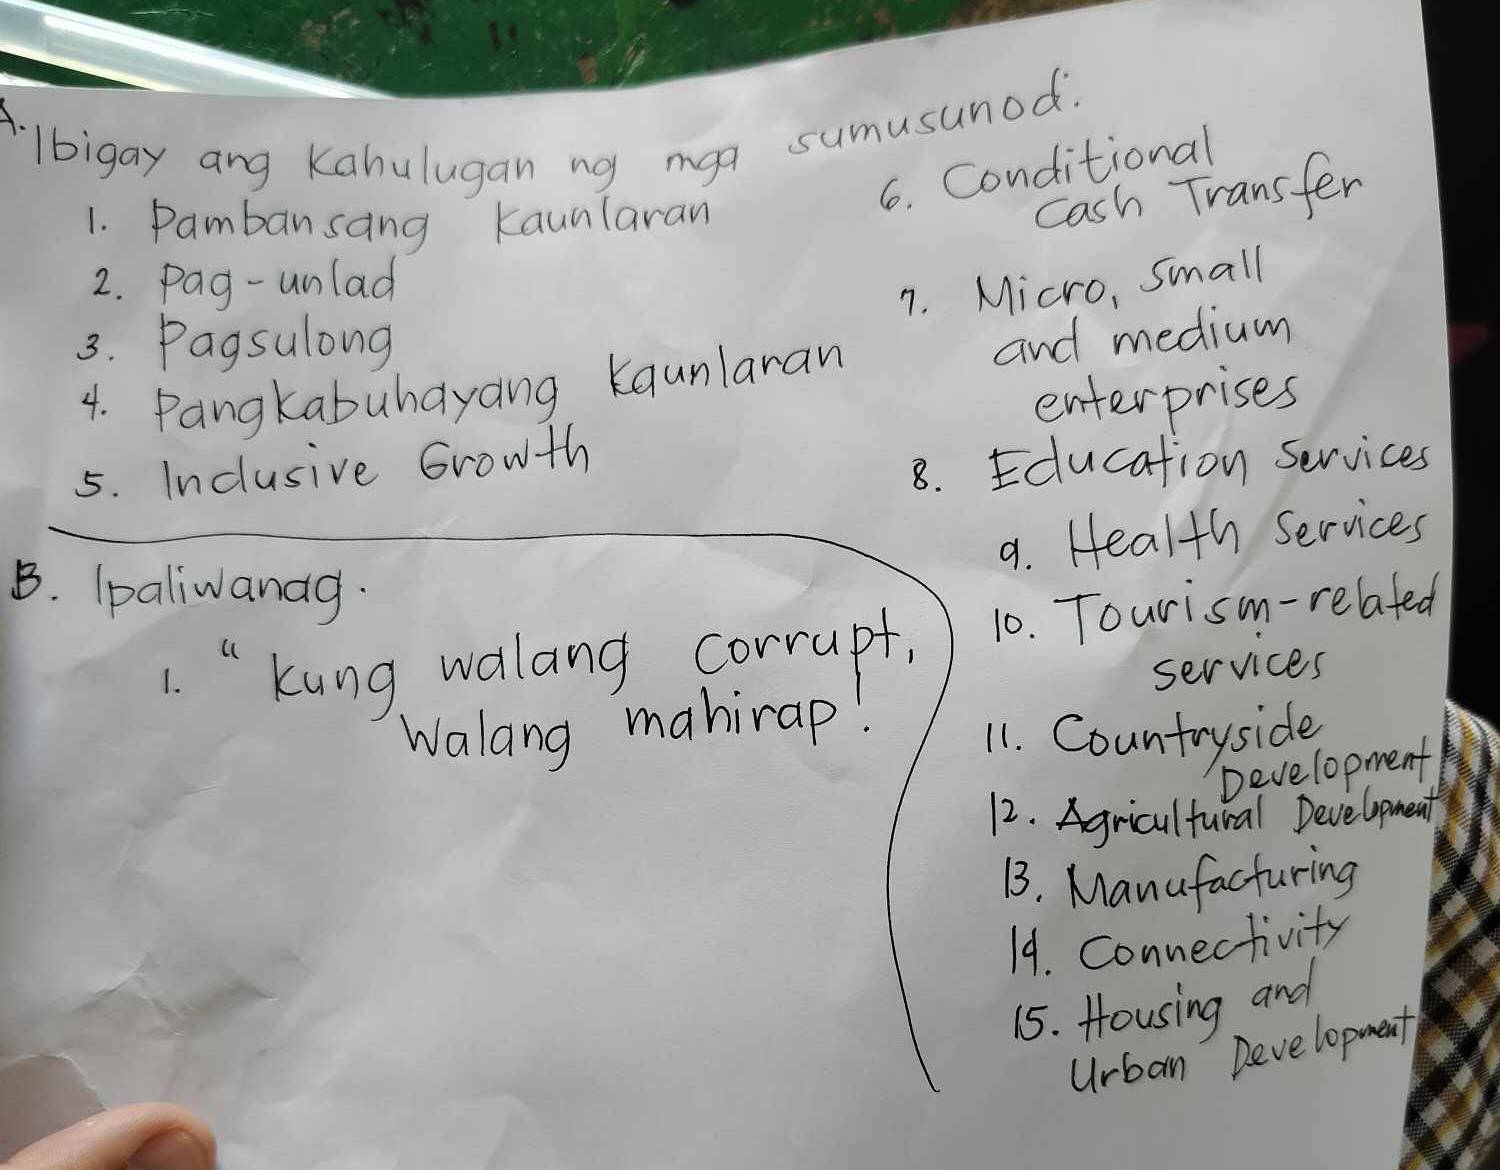 A. Ibigay ang Kahulugan ng mga sumusunod:
1. Pambansang Kaunlaran
2. Pag-unlad
3. Pagsulong
4. Pangkabuhayang Kaunlaran
5. Inclusive Growth
6. Conditional
Cash Transfer
7. Micro, Small
and medium
enterprises
8. Education Services
9. Health Services
10. Tourism-related
services
11. Countryside
Development
12. Agricultural Development
13. Manufacturing
14. Connectivity
15. Housing and
Urban Development
B. Ipaliwanag.
1. "Kung walang corrupt,
Walang mahirap!